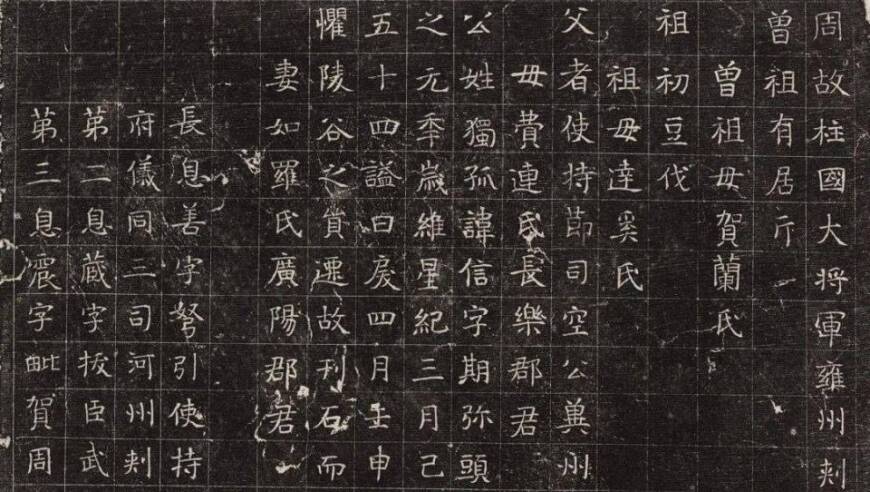 周故柱國大将軍雍州刾
曾祖有居斤
曾祖母賀蘭氏
祖初豆伐
祖母達奚氏
父者使持節司空公兾州
母費連氏長樂郡君
公姓獨孤諱信字期弥頭
之元年歲維星紀三月己
五十四謚曰戾四月壬申
懼陵谷之貿遷故刊石而
妻如羅氏廣陽郡君
長息善字弩引使持
府儀同三司河州刾
第二息藏字拔臣武
第三息震字毗賀周